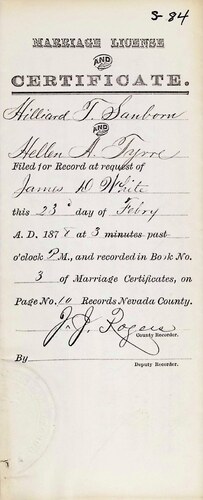 S-84
MARRIAGE LICENSE
AND
CERTIFICATE.
Hilliard T. Sanborn
AND
Hellen A. Tyrre
Filed for Record at request of
James D White
this 23d day of Febry
A. D. 187 at 3 minutes past
o'clock P.M., and recorded in Book No.
3 of Marriage Certificates, on
Page No. 10 Records Nevada County.
J. J. Rogers
County Recorder.
By
Deputy Recorder.